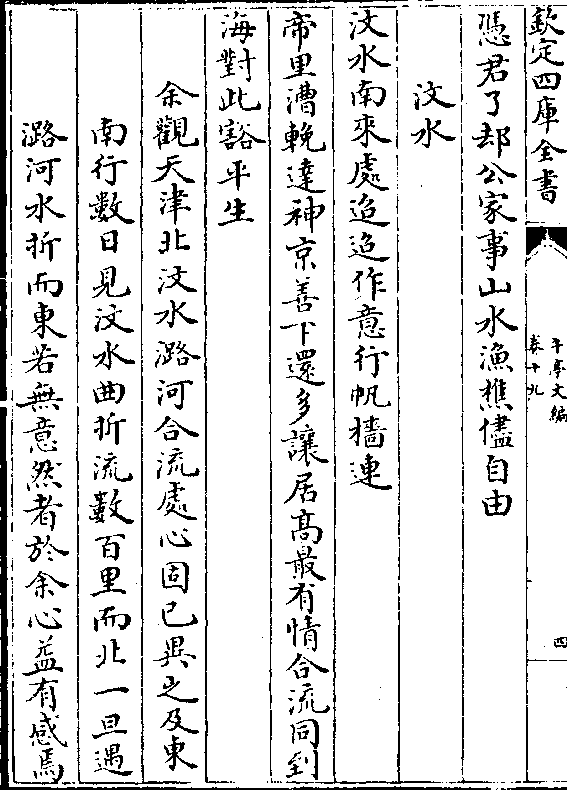 欽定四庫全書
午亭文編
卷十九
四
憑君了却公家事山水漁樵儘自由
汶水
汶水南來處迢迢作意行帆檣連
帝里漕輓達神京善下還多讓居高最有情合流同到
海對此豁平生
余觀天津北汶水潞河合流處心固已異之及東
南行數日見汶水曲折流數百里而北一旦遇
潞河水折而東若無意然者於余心益有感焉